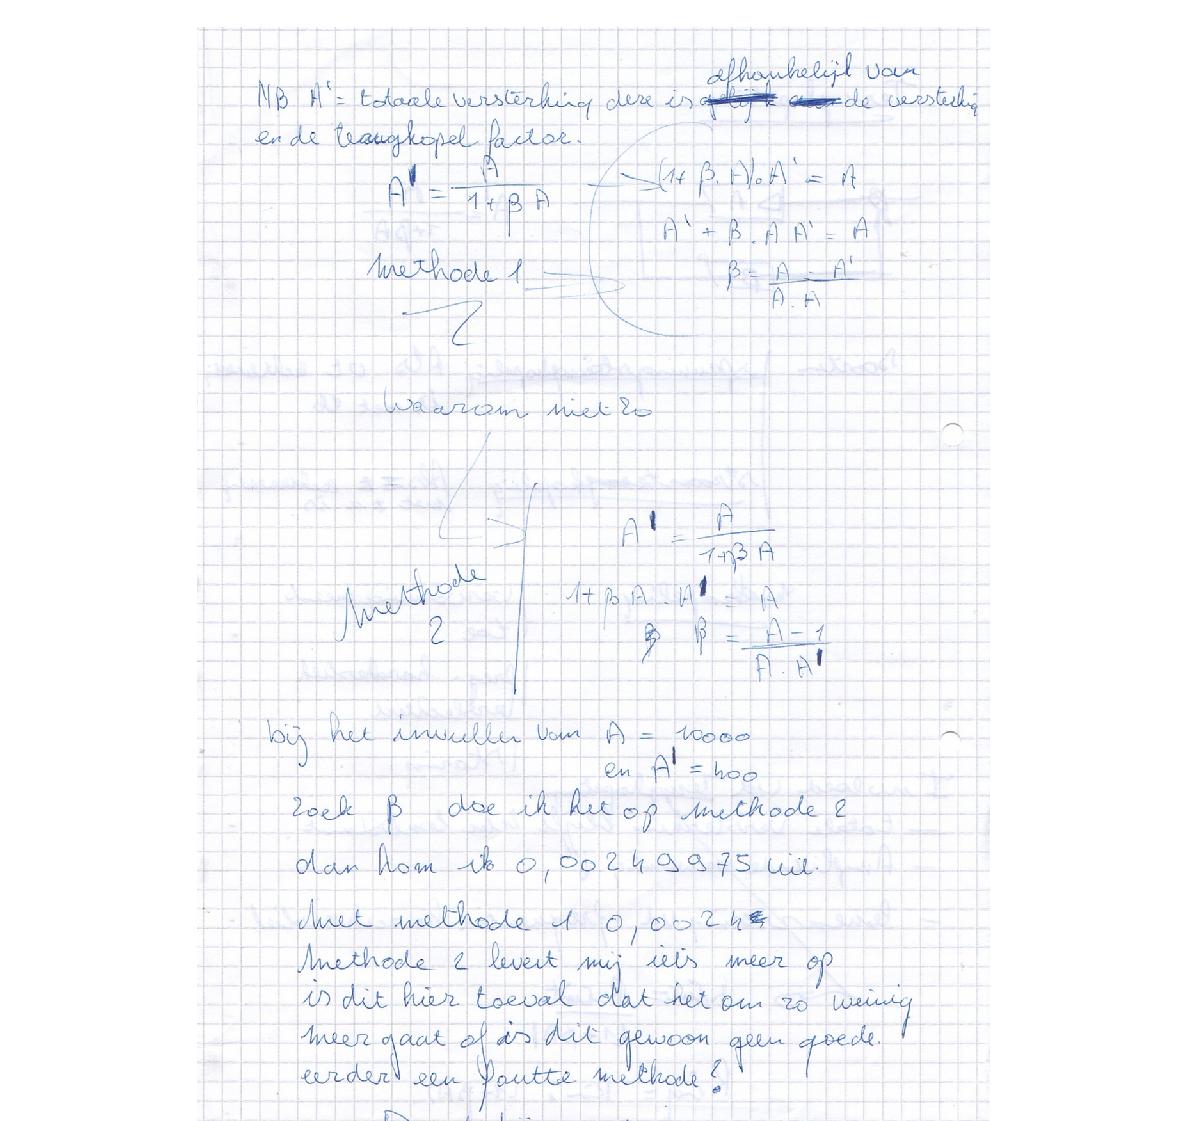 afhankelijk van
NB A' = totaale versterking deze is de versterking
en de terugkopel factor.
A' = A / (1 + β A)
(1 + β . A) . A' = A
A' + β . A A' = A
methode 1
β = (A - A') / (A . A)
Waarom niet zo
A' = A / (1 + β A)
methode
2
1 + β A . A' = A
β = (A - 1) / (A . A')
bij het invullen van A = 10000
en A' = 400
zoek β doe ik het op methode 2
dan kom ik 0,00249975 uit.
Met methode 1 0,0024
Methode 2 levert mij iets meer op
is dit hier toeval dat het om zo weinig
meer gaat of is dit gewoon geen goede.
eerder een foutte methode?